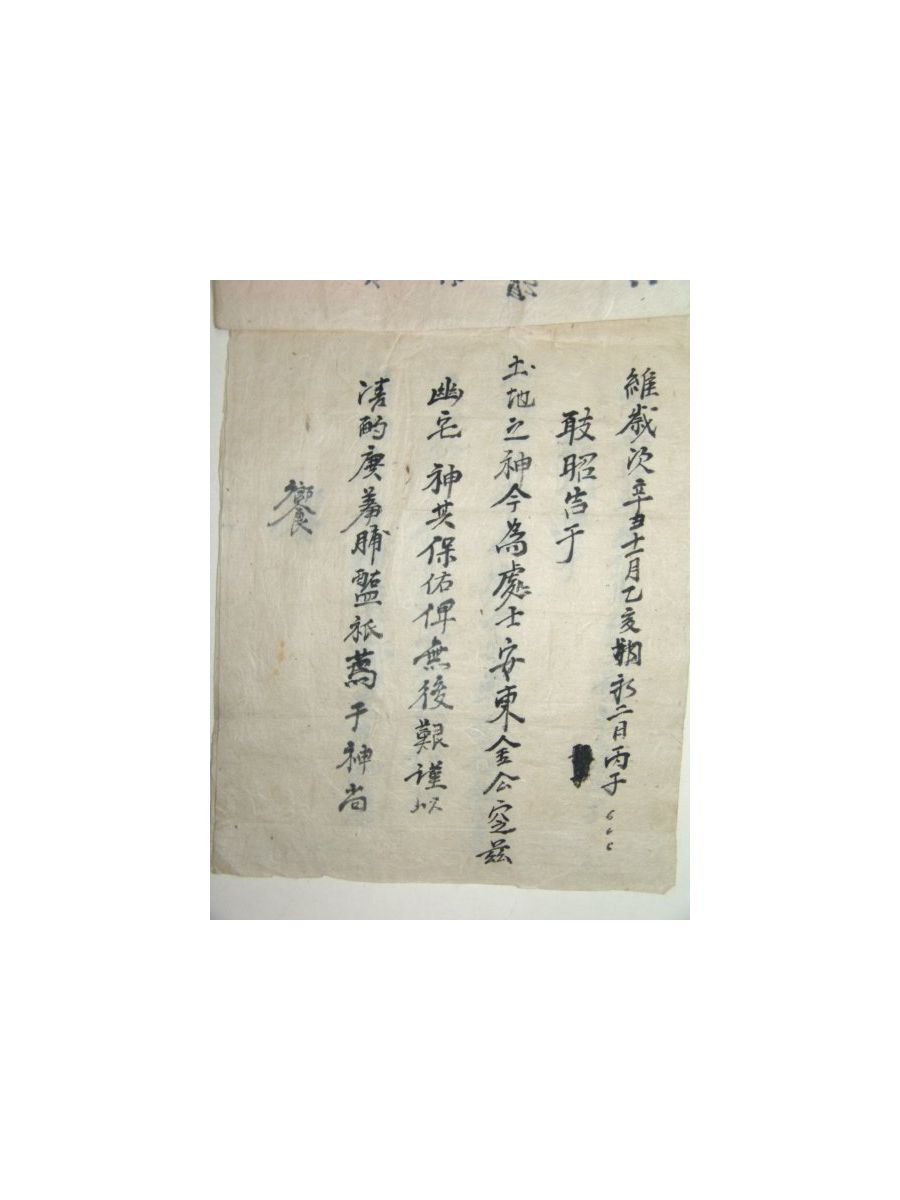 維歲次辛丑十一月乙亥朔初二日丙子
敢昭告于
土地之神今為處士安東金公窆茲
幽宅 神其保佑俾無後艱謹以
清酌庶羞脯醢祗薦于神尚
饗